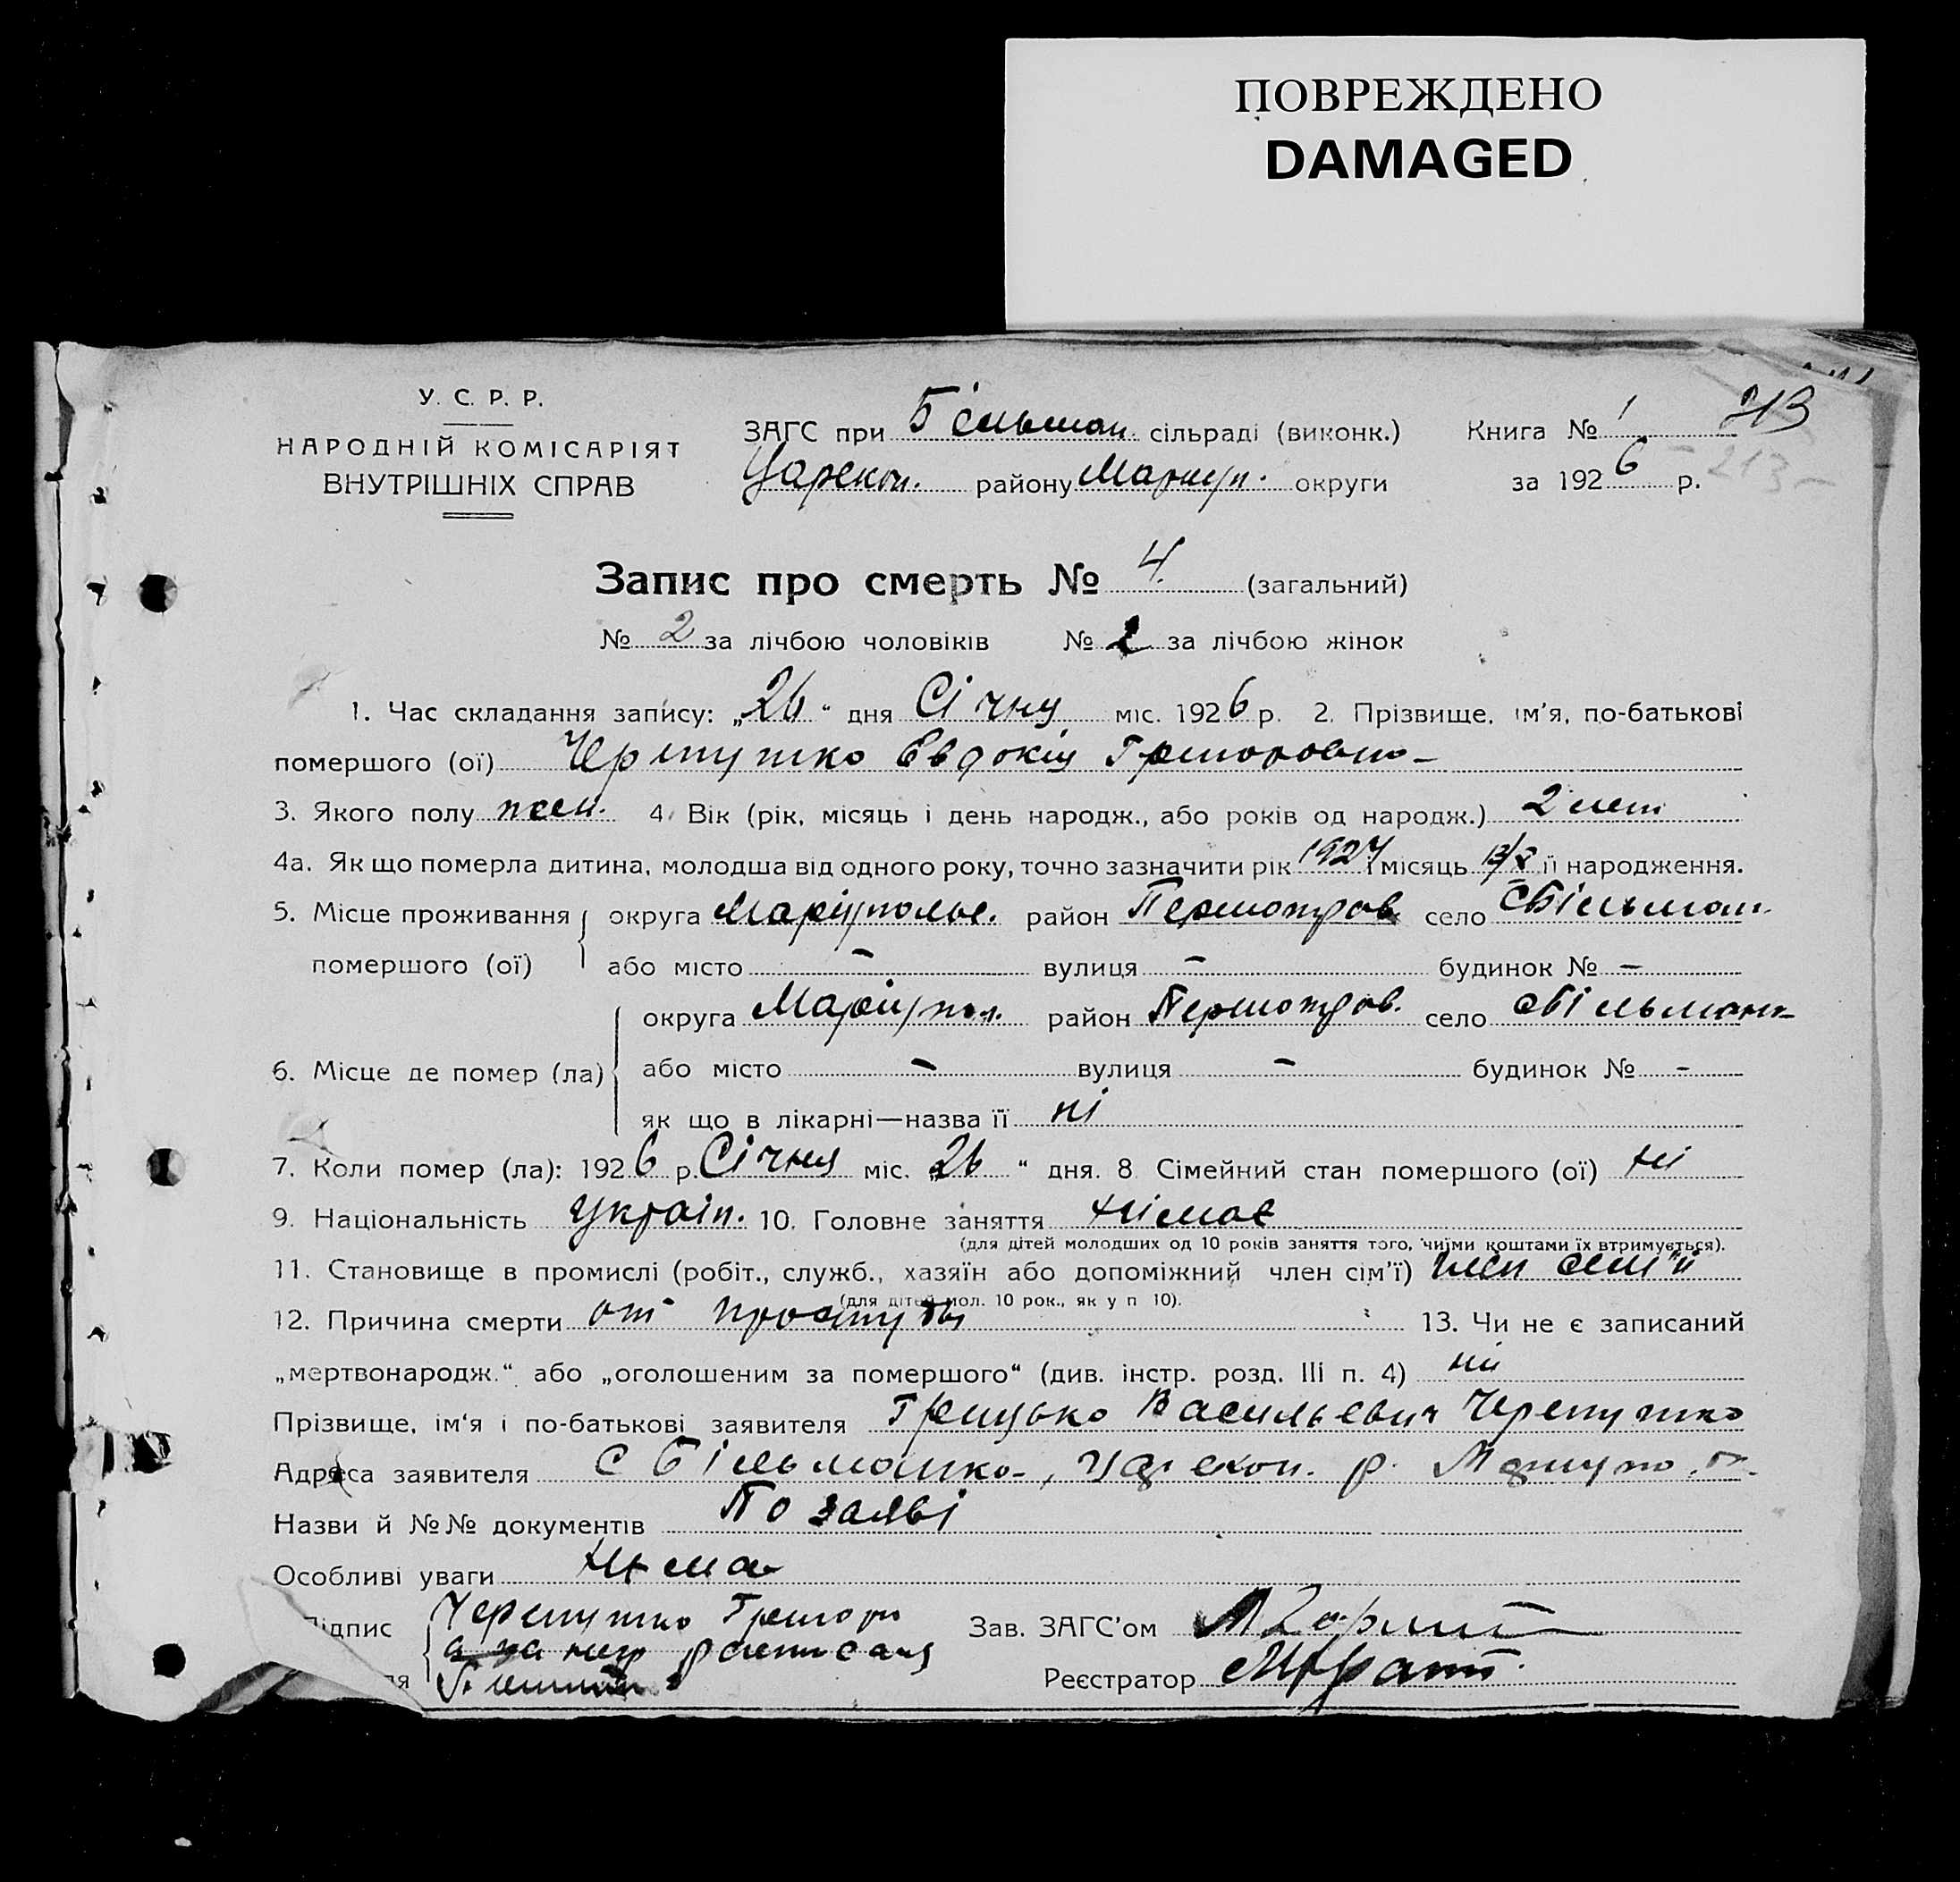 ПОВРЕЖДЕНО
DAMAGED
У. С. Р. Р.
НАРОДНІЙ КОМІСАРІЯТ
ВНУТРІШНІХ СПРАВ
ЗАГС при Більман. сільраді (виконк.) Книга № 1 213
Царекон. району Маріуп. округи за 1926 р. 213
Запис про смерть № 4. (загальний)
№ 2 за лічбою чоловіків № 2 за лічбою жінок
1. Час складання запису: „26“ дня Січня міс. 1926 р. 2. Прізвище, ім'я, по-батькові
помершого (ої) Черепутко Евдокія Григоровна
3. Якого полу жен. 4. Вік (рік, місяць і день народж., або років од народж.) 2 лет
4а. Як що померла дитина, молодша від одного року, точно зазначити рік 1924 місяць її народження.
5. Місце проживання помершого (ої) округа Маріуполье. район село Більман.
або місто – вулиця – будинок № –
6. Місце де помер (ла) округа Маріупол. район село Більманк
або місто – вулиця – будинок № -
як що в лікарні—назва її ні
7. Коли помер (ла): 1926 р. Січня міс. „26“ дня. 8. Сімейний стан помершого (ої) ні
9. Національність україн. 10. Головне заняття німає
(для дітей молодших од 10 років заняття того, чиїми коштами їх втримується).
11. Становище в промислі (робіт., служб., хазяїн або допоміжний член сім'ї) член сем'ї
(для дітей мол. 10 рок., як у п 10).
12. Причина смерти от простуды 13. Чи не є записаний
„мертвонародж.“ або „оголошеним за помершого“ (див. інстр. розд. III п. 4) ні
Прізвище, ім'я і по-батькові заявителя Грицько Васильевич Черепутко
Адреса заявителя с Більманка, Царекон. р.
Назви й №№ документів По заяві
Особливі уваги Нема
ідпис Черепутко Григорій
а за нег расписался
я
Зав. ЗАГС'ом
Реєстратор